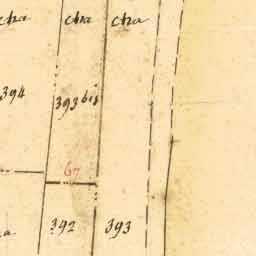 cha cha cha
394 393 bis
67
392 393
a